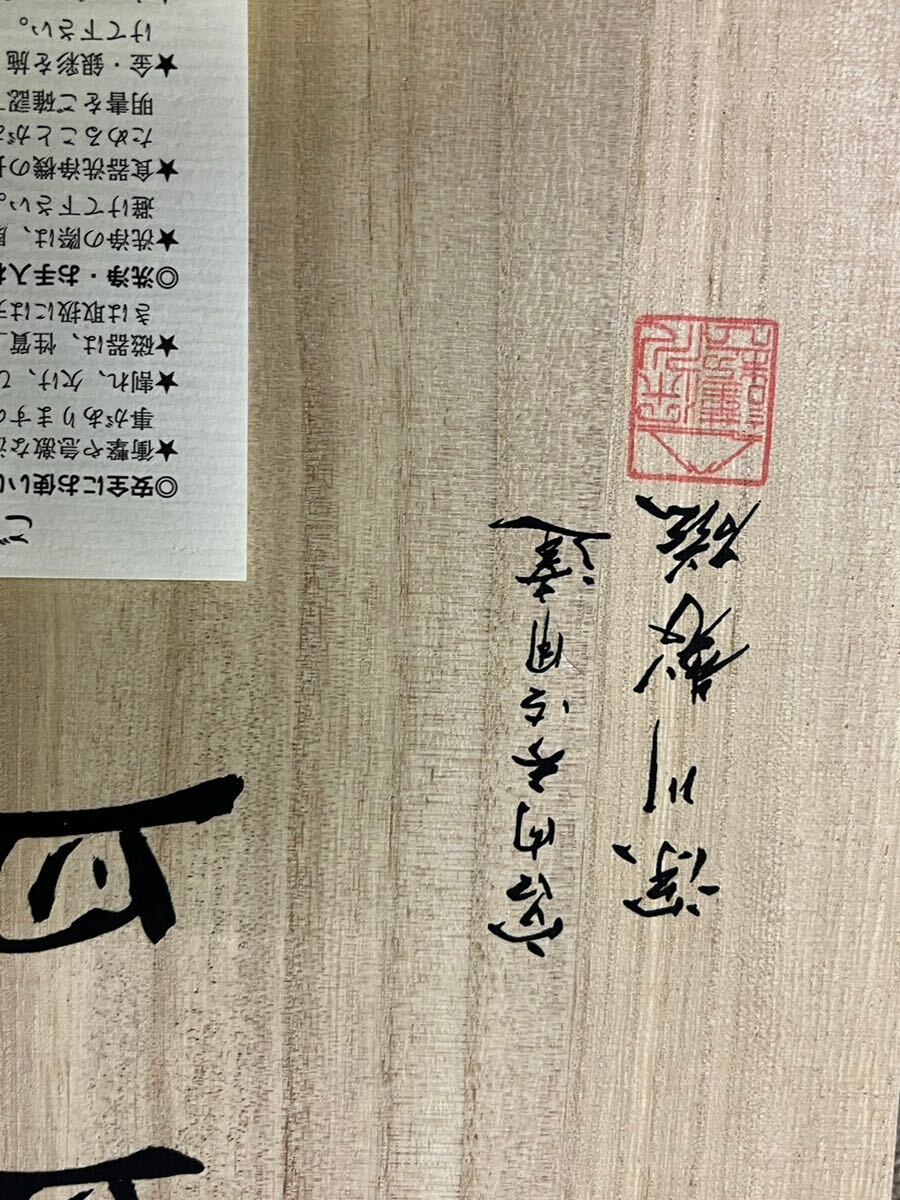 宮内省御用達
深川製磁
ご
◎安全にお使い
★衝撃や急激な
事がありますの
★割れ、欠け、ひ
★磁器は、性質
きは取扱には
◎洗浄・お手入れ
★洗浄の際は、
避けて下さい。
★食器洗浄機の
ためることが
明書をご確認
★金・銀彩を施
けて下さい。